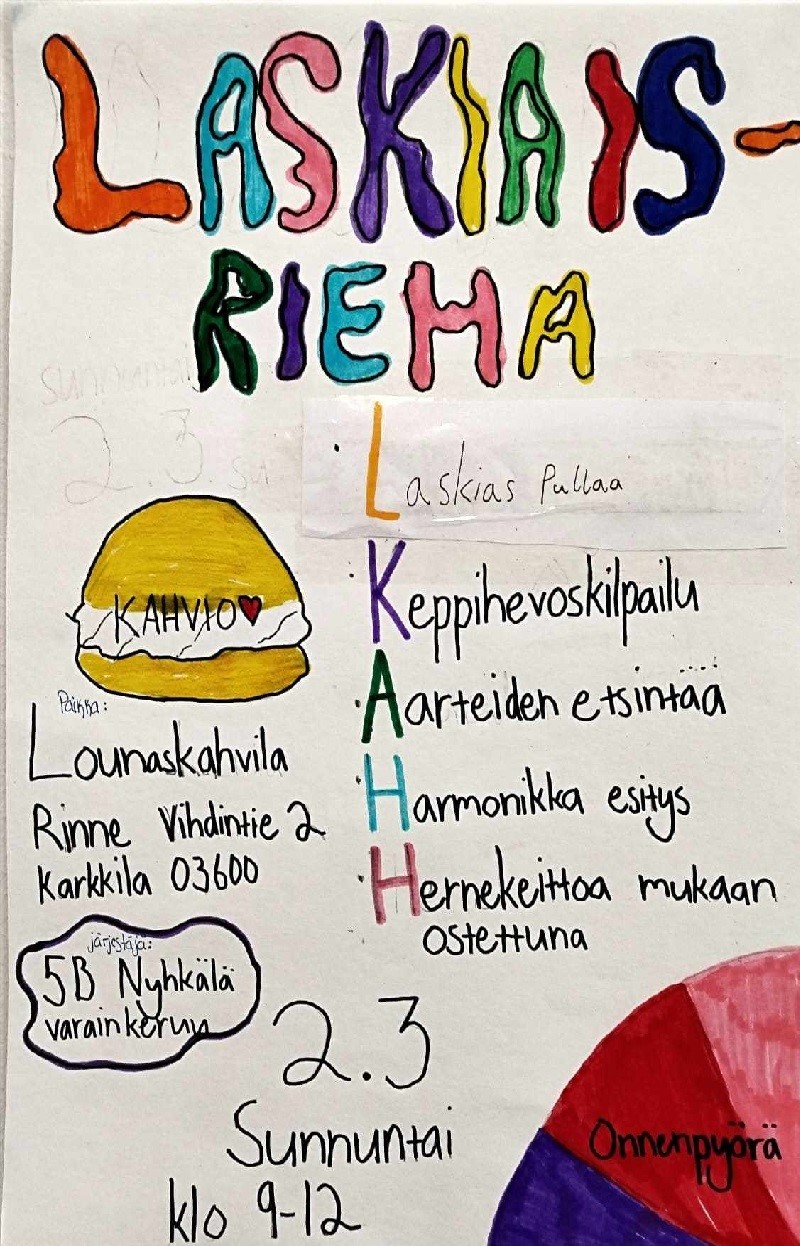 LASKIAIS-
RIEHA
sunnuntai
2.3. su
Laskias Pullaa
KAHVIO
Keppihevoskilpailu
Aarteiden etsintää
Paikka:
Lounaskahvila
Rinne Vihdintie 2
Karkkila 03600
Harmonikka esitys
Hernekeittoa mukaan
ostettuna
järjestäjä:
5B Nyhkälä
varainkeruu
2.3
Sunnuntai
klo 9-12
Onnenpyörä